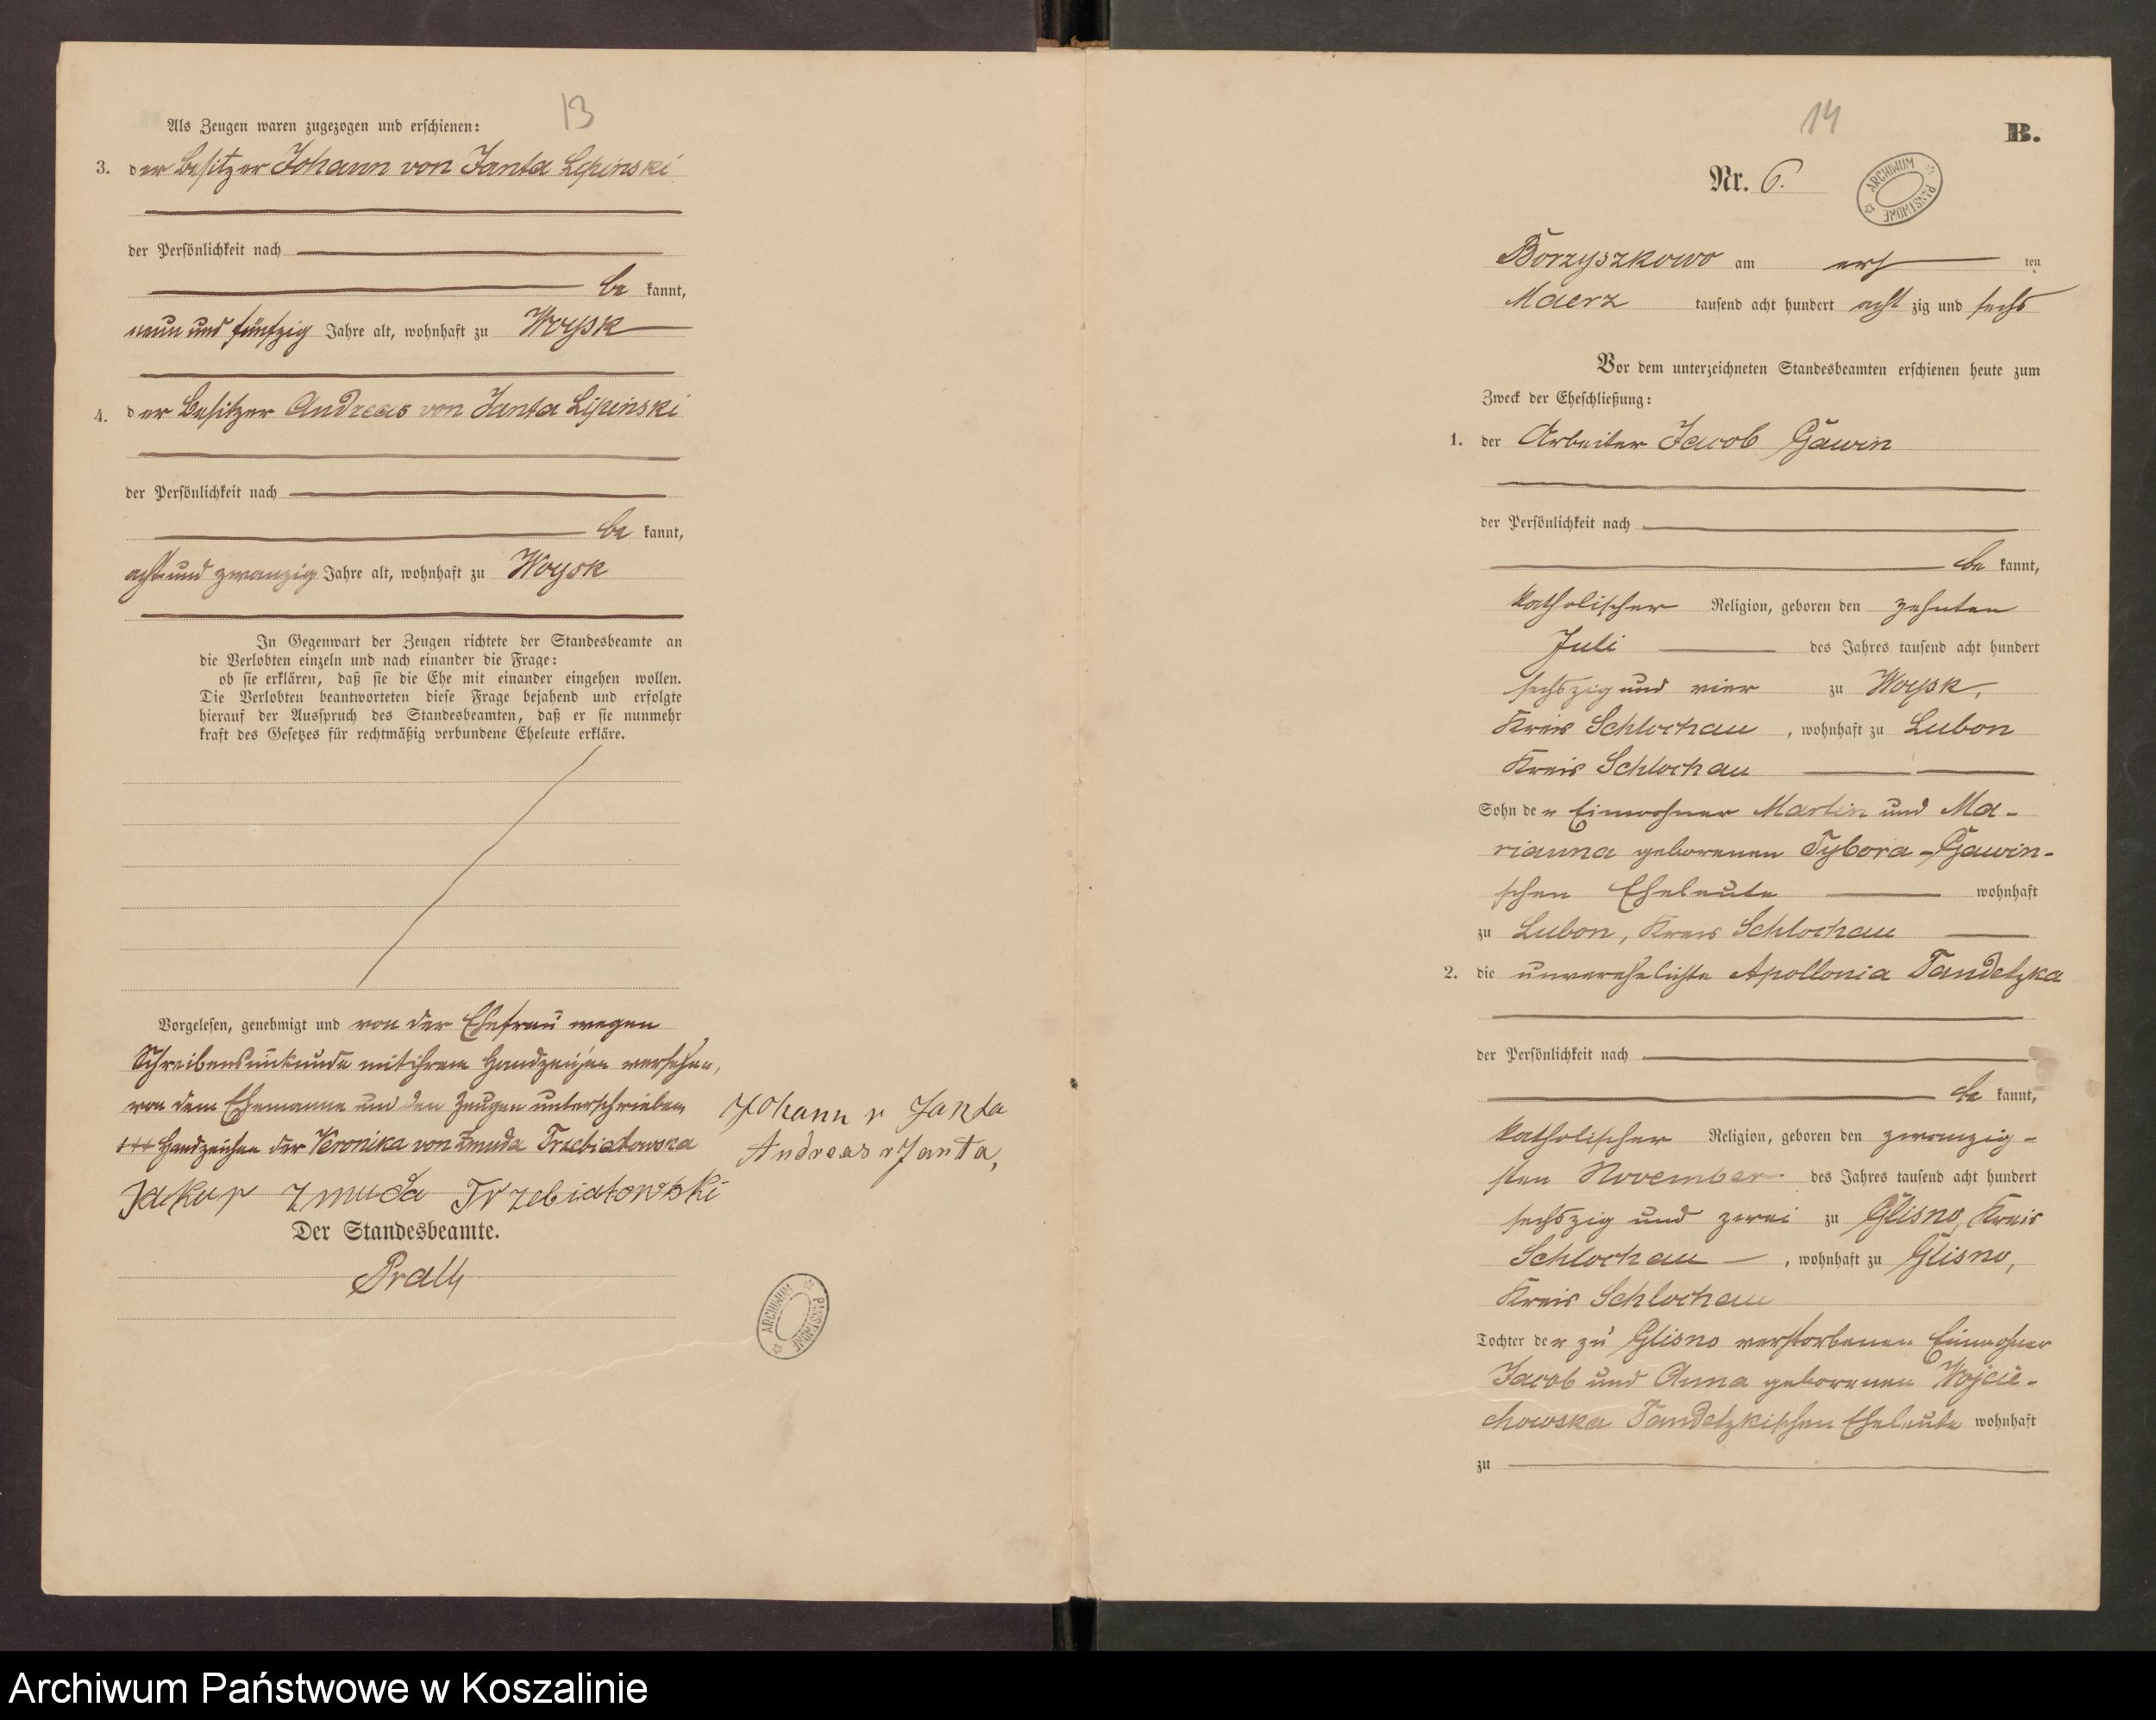 13
Als Zeugen waren zugezogen und erschienen:
3. der Besitzer Johann von Janta Lipinski
der Persönlichkeit nach
be kannt,
neun und fünfzig Jahre alt, wohnhaft zu Woysk
4. der Besitzer Andreas von Janta Lipinski
der Persönlichkeit nach
be kannt,
acht und zwanzig Jahre alt, wohnhaft zu Woysk
In Gegenwart der Zeugen richtete der Standesbeamte an
die Verlobten einzeln und nach einander die Frage:
ob sie erklären, daß sie die Ehe mit einander eingehen wollen.
Die Verlobten beantworteten diese Frage bejahend und erfolgte
hierauf der Ausspruch des Standesbeamten, daß er sie nunmehr
kraft des Gesetzes für rechtmäßig verbundene Eheleute erkläre.
Vorgelesen, genehmigt und von der Ehefrau wegen
Schreibensunkunde mit ihrem Handzeichen versehen,
von dem Ehemanne und den Zeugen unterschrieben
+++ Handzeichen der Veronika von Zmuda Trzebiatowska
Jakup Zmuda Trzebiatowski
Johann v Janta
Andreas v Janta,
Der Standesbeamte.
ARCHIWUM PAŃSTWOWE
14
B.
Nr. 6.
ARCHIWUM PAŃSTWOWE
Borzyszkowo am ers ten
Maerz tausend acht hundert acht zig und sechs
Vor dem unterzeichneten Standesbeamten erschienen heute zum
Zweck der Eheschließung:
1. der Arbeiter Jacob Gawin
der Persönlichkeit nach
be kannt,
katholischer Religion, geboren den zehnten
Juli des Jahres tausend acht hundert
sechszig und vier zu Woysk,
Kreis Schlochau, wohnhaft zu Lubon
Kreis Schlochau
Sohn der Einwohner Martin und Ma-
rianna geborenen Tybora-Gawin-
schen Eheleute wohnhaft
zu Lubon, Kreis Schlochau
2. die unverehelichte Apollonia Tandetzka
der Persönlichkeit nach
be kannt,
katholischer Religion, geboren den zwanzig-
sten November des Jahres tausend acht hundert
sechszig und zwei zu Glisno, Kreis
Schlochau, wohnhaft zu Glisno,
Kreis Schlochau
Tochter der zu Glisno verstorbenen Einwohner
Jacob und Anna geborenen Wojcie-
chowska Tandetzkischen Eheleute wohnhaft
zu
Archiwum Państwowe w Koszalinie